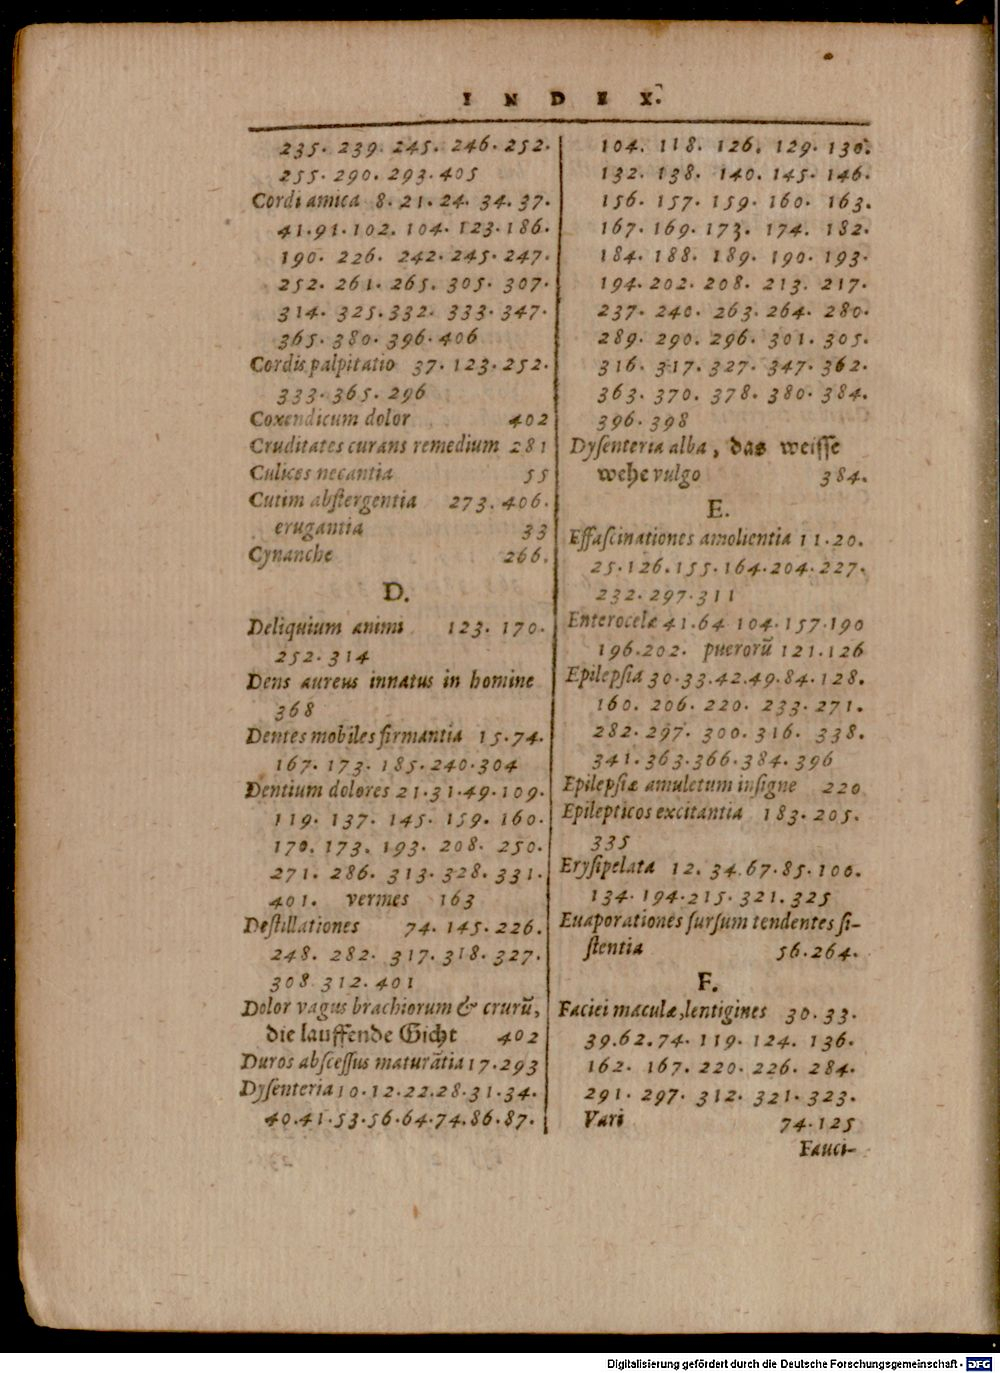 INDEX.
235. 239. 245. 246. 252.
255. 290. 293. 405
Cordi amica 8. 21. 24. 34. 37.
41. 91. 102. 104. 123. 186.
190. 226. 242. 245. 247.
252. 261. 265. 305. 307.
314. 325. 332. 333. 347.
365. 380. 396. 406
Cordis palpitatio 37. 123. 252.
333. 365. 296
Coxendicum dolor 402
Cruditates curans remedium 281
Culices necantia 55
Cutim abſtergentia 273. 406.
erugantia 33
Cynanche 266.
D.
Deliquium animi 123. 170.
252. 314
Dens aureus innatus in homine
368
Dentes mobiles firmantia 15. 74.
167. 173. 185. 240. 304
Dentium dolores 21. 31. 49. 109.
119. 137. 145. 159. 160.
170. 173. 193. 208. 250.
271. 286. 313. 328. 331.
401. vermes 163
Deſtillationes 74. 145. 226.
248. 282. 317. 318. 327.
308 312. 401
Dolor vagus brachiorum & crurũ,
die lauffende Gicht 402
Duros abſceſſus maturãtia 17. 293
Dyſenteria 10. 12. 22. 28. 31. 34.
40. 41. 53. 56. 64. 74. 86. 87.
104. 118. 126. 129. 130.
132. 138. 140. 145. 146.
156. 157. 159. 160. 163.
167. 169. 173. 174. 182.
184. 188. 189. 190. 193.
194. 202. 208. 213. 217.
237. 240. 263. 264. 280.
289. 290. 296. 301. 305.
316. 317. 327. 347. 362.
363. 370. 378. 380. 384.
396. 398
Dyſenteria alba, das weiſſe
wehe vulgo 384.
E.
Effaſcinationes amolientia 11. 20.
25. 126. 155. 164. 204. 227.
232. 297. 311
Enterocelæ 41. 64 104. 157. 190
196. 202. puerorũ 121. 126
Epilepſia 30. 33. 42. 49. 84. 128.
160. 206. 220. 233. 271.
282. 297. 300. 316. 338.
341. 363. 366. 384. 396
Epilepſiæ amuletum inſigne 220
Epilepticos excitantia 183. 205.
335
Eryſipelata 12. 34. 67. 85. 100.
134. 194. 215. 321. 325
Euaporationes ſurſum tendentes ſi-
ſtentia 56. 264.
F.
Faciei maculæ, lentigines 30. 33.
39. 62. 74. 119. 124. 136.
162. 167. 220. 226. 284.
291. 297. 312. 321. 323.
Vari 74. 125
Fauci-
Digitalisierung gefördert durch die Deutsche Forschungsgemeinschaft - DFG